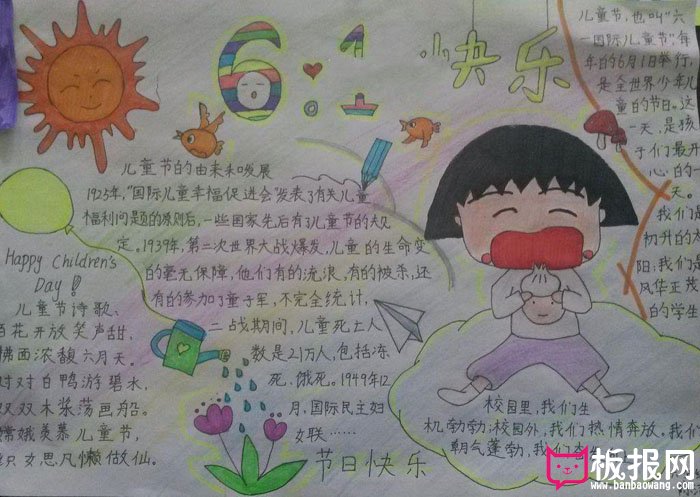 6.1
快乐
儿童节,也叫“六
一国际儿童节”,每
年的6月1日举行,
是全世界少年儿
童的节日。这
一天,是孩
子们最开
心的一
天。
我们是
初升的太
阳;我们是
风华正茂
的学生
儿童节的由来和发展
1925年,“国际儿童幸福促进会”发表了有关儿童
福利问题的原则后,一些国家先后有了儿童节的规
定。1939年,第二次世界大战爆发,儿童的生命变
的毫无保障,他们有的流浪,有的被杀,还
有的参加了童子军,不完全统计,
二战期间,儿童死亡人
数是21万人,包括冻
死、饿死。1949年12
月,国际民主妇
女联……
Happy Children's
Day!
儿童节诗歌、
百花开放笑声甜,
拂面浓馥六月天。
对对白鸭游碧水,
双双木桨荡画船。
嫦娥羡慕儿童节,
织女思凡懒做仙。
校园里,我们生
机勃勃;校园外,我们热情奔放。我们
朝气蓬勃,我们
节日快乐
板报网
www.banbaowang.com